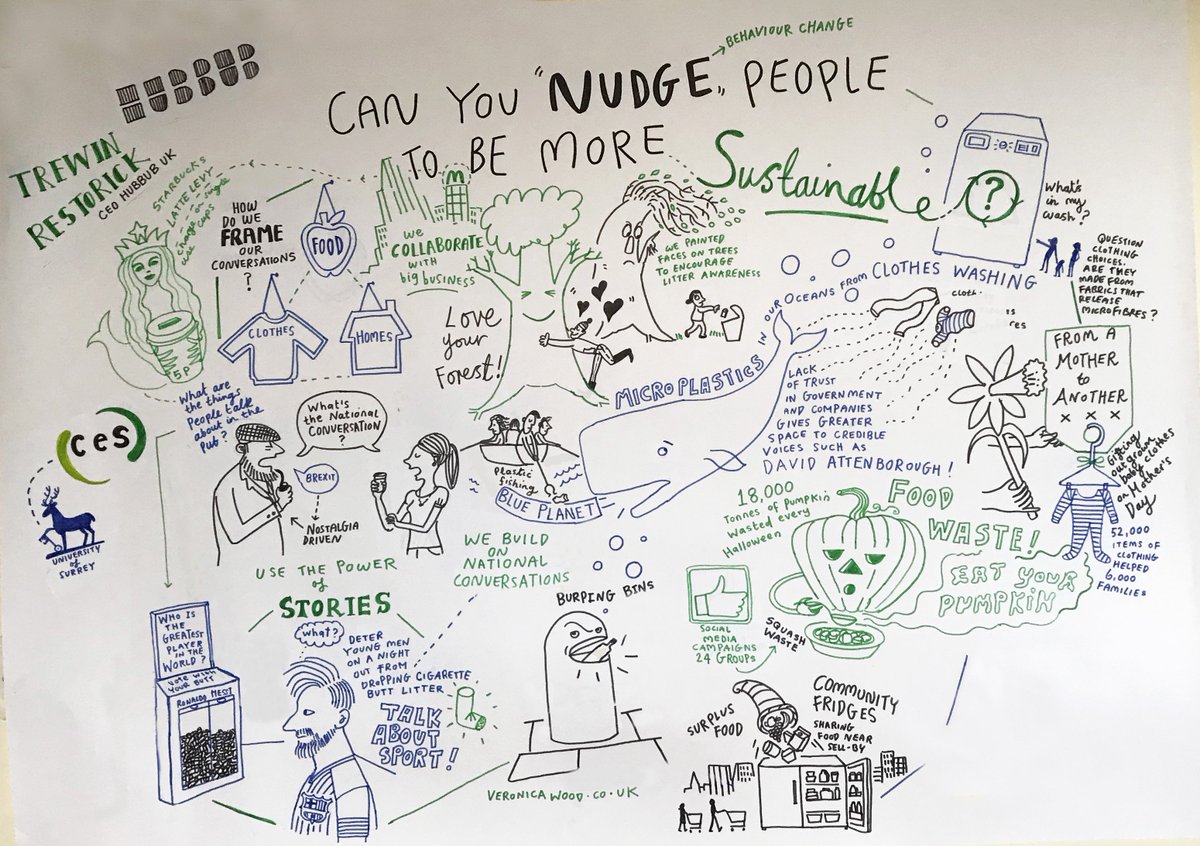 HUBBUB
BEHAVIOUR CHANGE
CAN YOU "NUDGE" PEOPLE
TO BE MORE
Sustainable
TREWIN
RESTORICK
CEO HUBBUB UK
STARBUCKS
LATTE LEVY
change in single
use cups
5P
HOW
DO WE
FRAME
OUR
CONVERSATIONS
?
FOOD
CLOTHES
HOMES
we
COLLABORATE
with
big business
Love
your
Forest!
WE PAINTED
FACES ON TREES
TO ENCOURAGE
LITTER AWARENESS
?
What's
in my
wash?
QUESTION
CLOTHING
CHOICES.
ARE THEY
MADE FROM
FABRICS THAT
RELEASE
MICROFIBRES?
MICROPLASTICS IN OUR OCEANS FROM CLOTHES WASHING
cloth.
is
res
FROM A
MOTHER
to
ANOTHER
x x x
Gifting
outgrown
baby clothes
on Mother's
Day
52,000
ITEMS OF
CLOTHING
HELPED
6,000
FAMILIES
LACK
OF TRUST
IN GOVERNMENT
AND COMPANIES
GIVES GREATER
SPACE TO CREDIBLE
VOICES SUCH AS
DAVID ATTENBOROUGH!
Plastic
fishing
BLUE PLANET
What are
the things
People talk
about in the
Pub?
ces
UNIVERSITY
OF SURREY
What's
the National
CONVERSATION
?
BREXIT
NOSTALGIA
DRIVEN
WE BUILD
ON
NATIONAL
CONVERSATIONS
USE THE POWER
of
STORIES
18,000
Tonnes of Pumpkin
Wasted every
Halloween
FOOD
WASTE!
EAT YOUR
PUMPKIN
SQUASH
WASTE
SOCIAL
MEDIA
CAMPAIGNS
24 GROUPS
WHO IS
THE
GREATEST
PLAYER
IN THE
WORLD?
VOTE WITH
YOUR BUTT
RONALDO MESSI
what?
DETER
YOUNG MEN
ON A NIGHT
OUT FROM
DROPPING CIGARETTE
BUTT LITTER
TALK
ABOUT
SPORT!
BURPING BINS
SURPLUS
FOOD
COMMUNITY
FRIDGES
SHARING
FOOD NEAR
SELL-BY
VERONICAWOOD.CO.UK